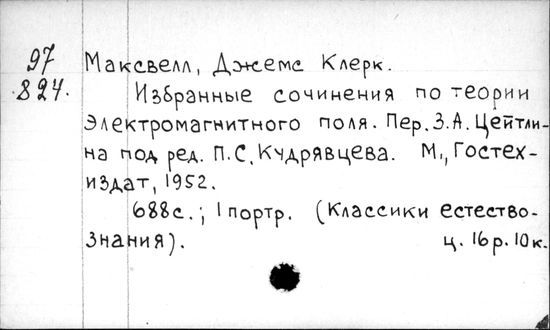 97 Максвелл, Джемс Клерк.
824. Избранные сочинения по теории
электромагнитного поля. Пер. З.А. Цейтли-
на под ред. П.С. Кудрявцева. М., Гостех-
издат, 1952.
688с.; 1 портр. (Классики естество-
знания). ц. 16р. 10к.